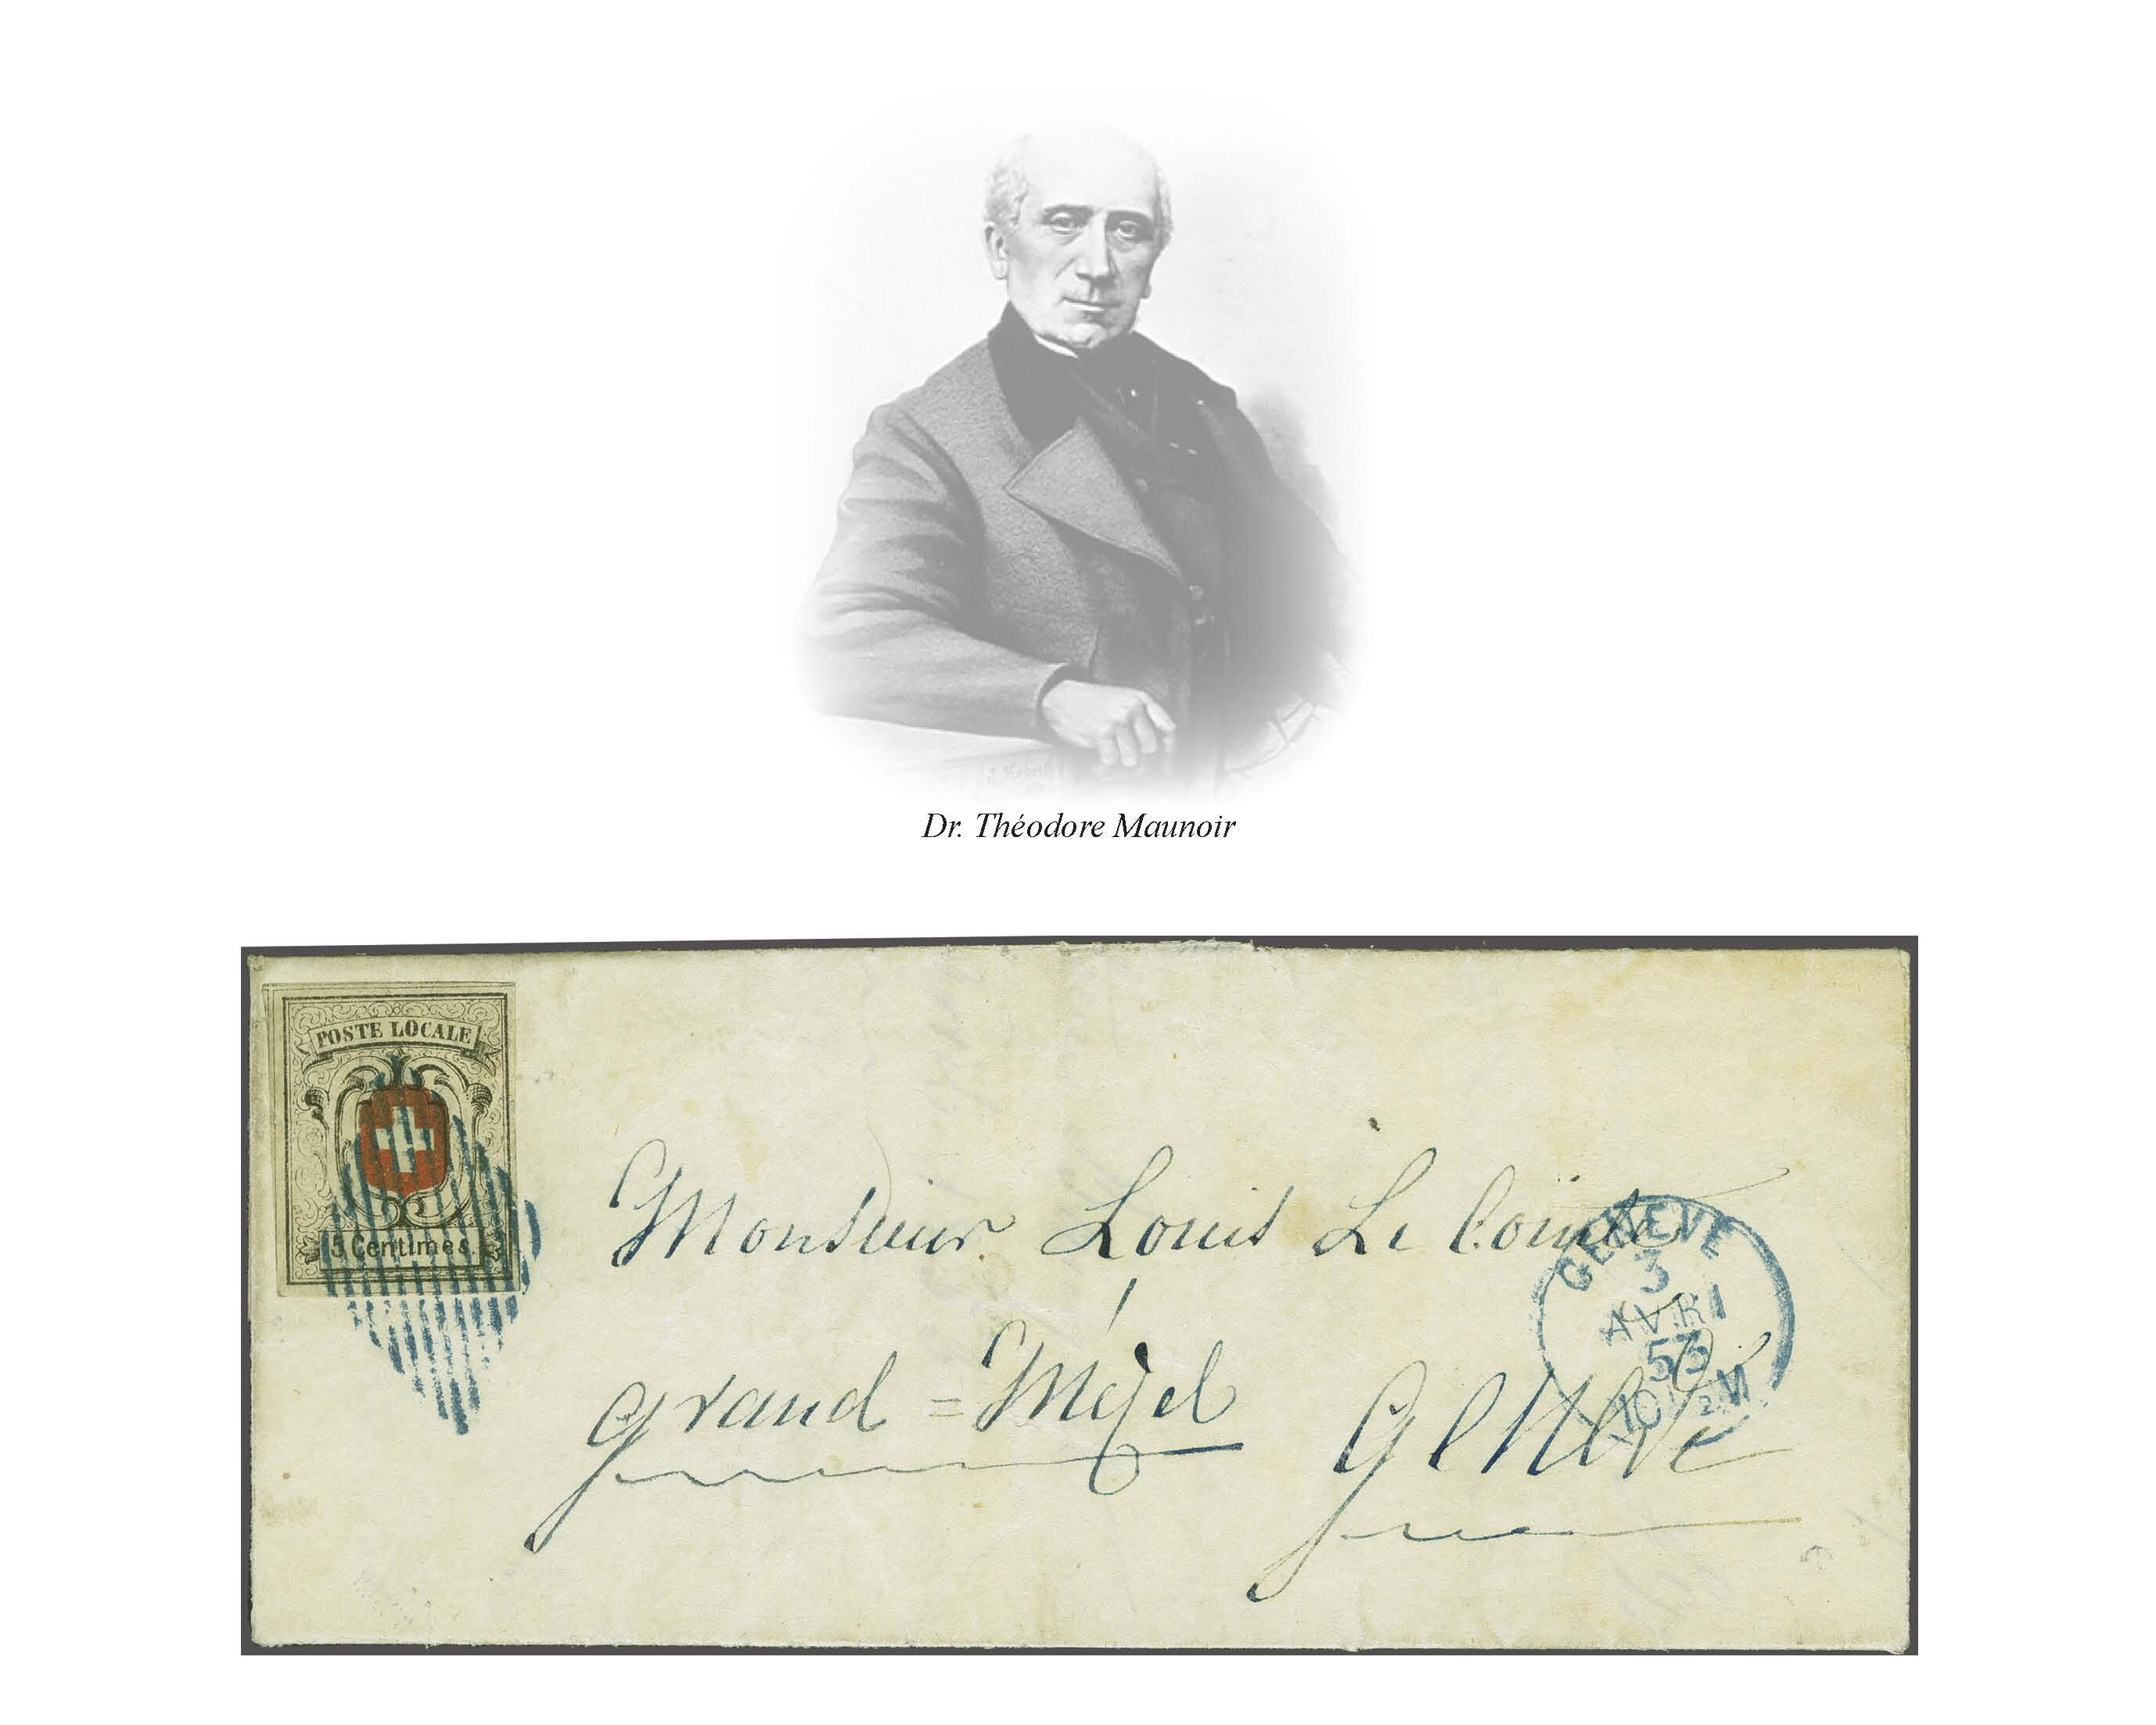 Dr. Théodore Maunoir
POSTE LOCALE
5 Centimes.
Monsieur Louis Le Comte
grand = Mézel Genève
GENEVE
3
AVRI
53